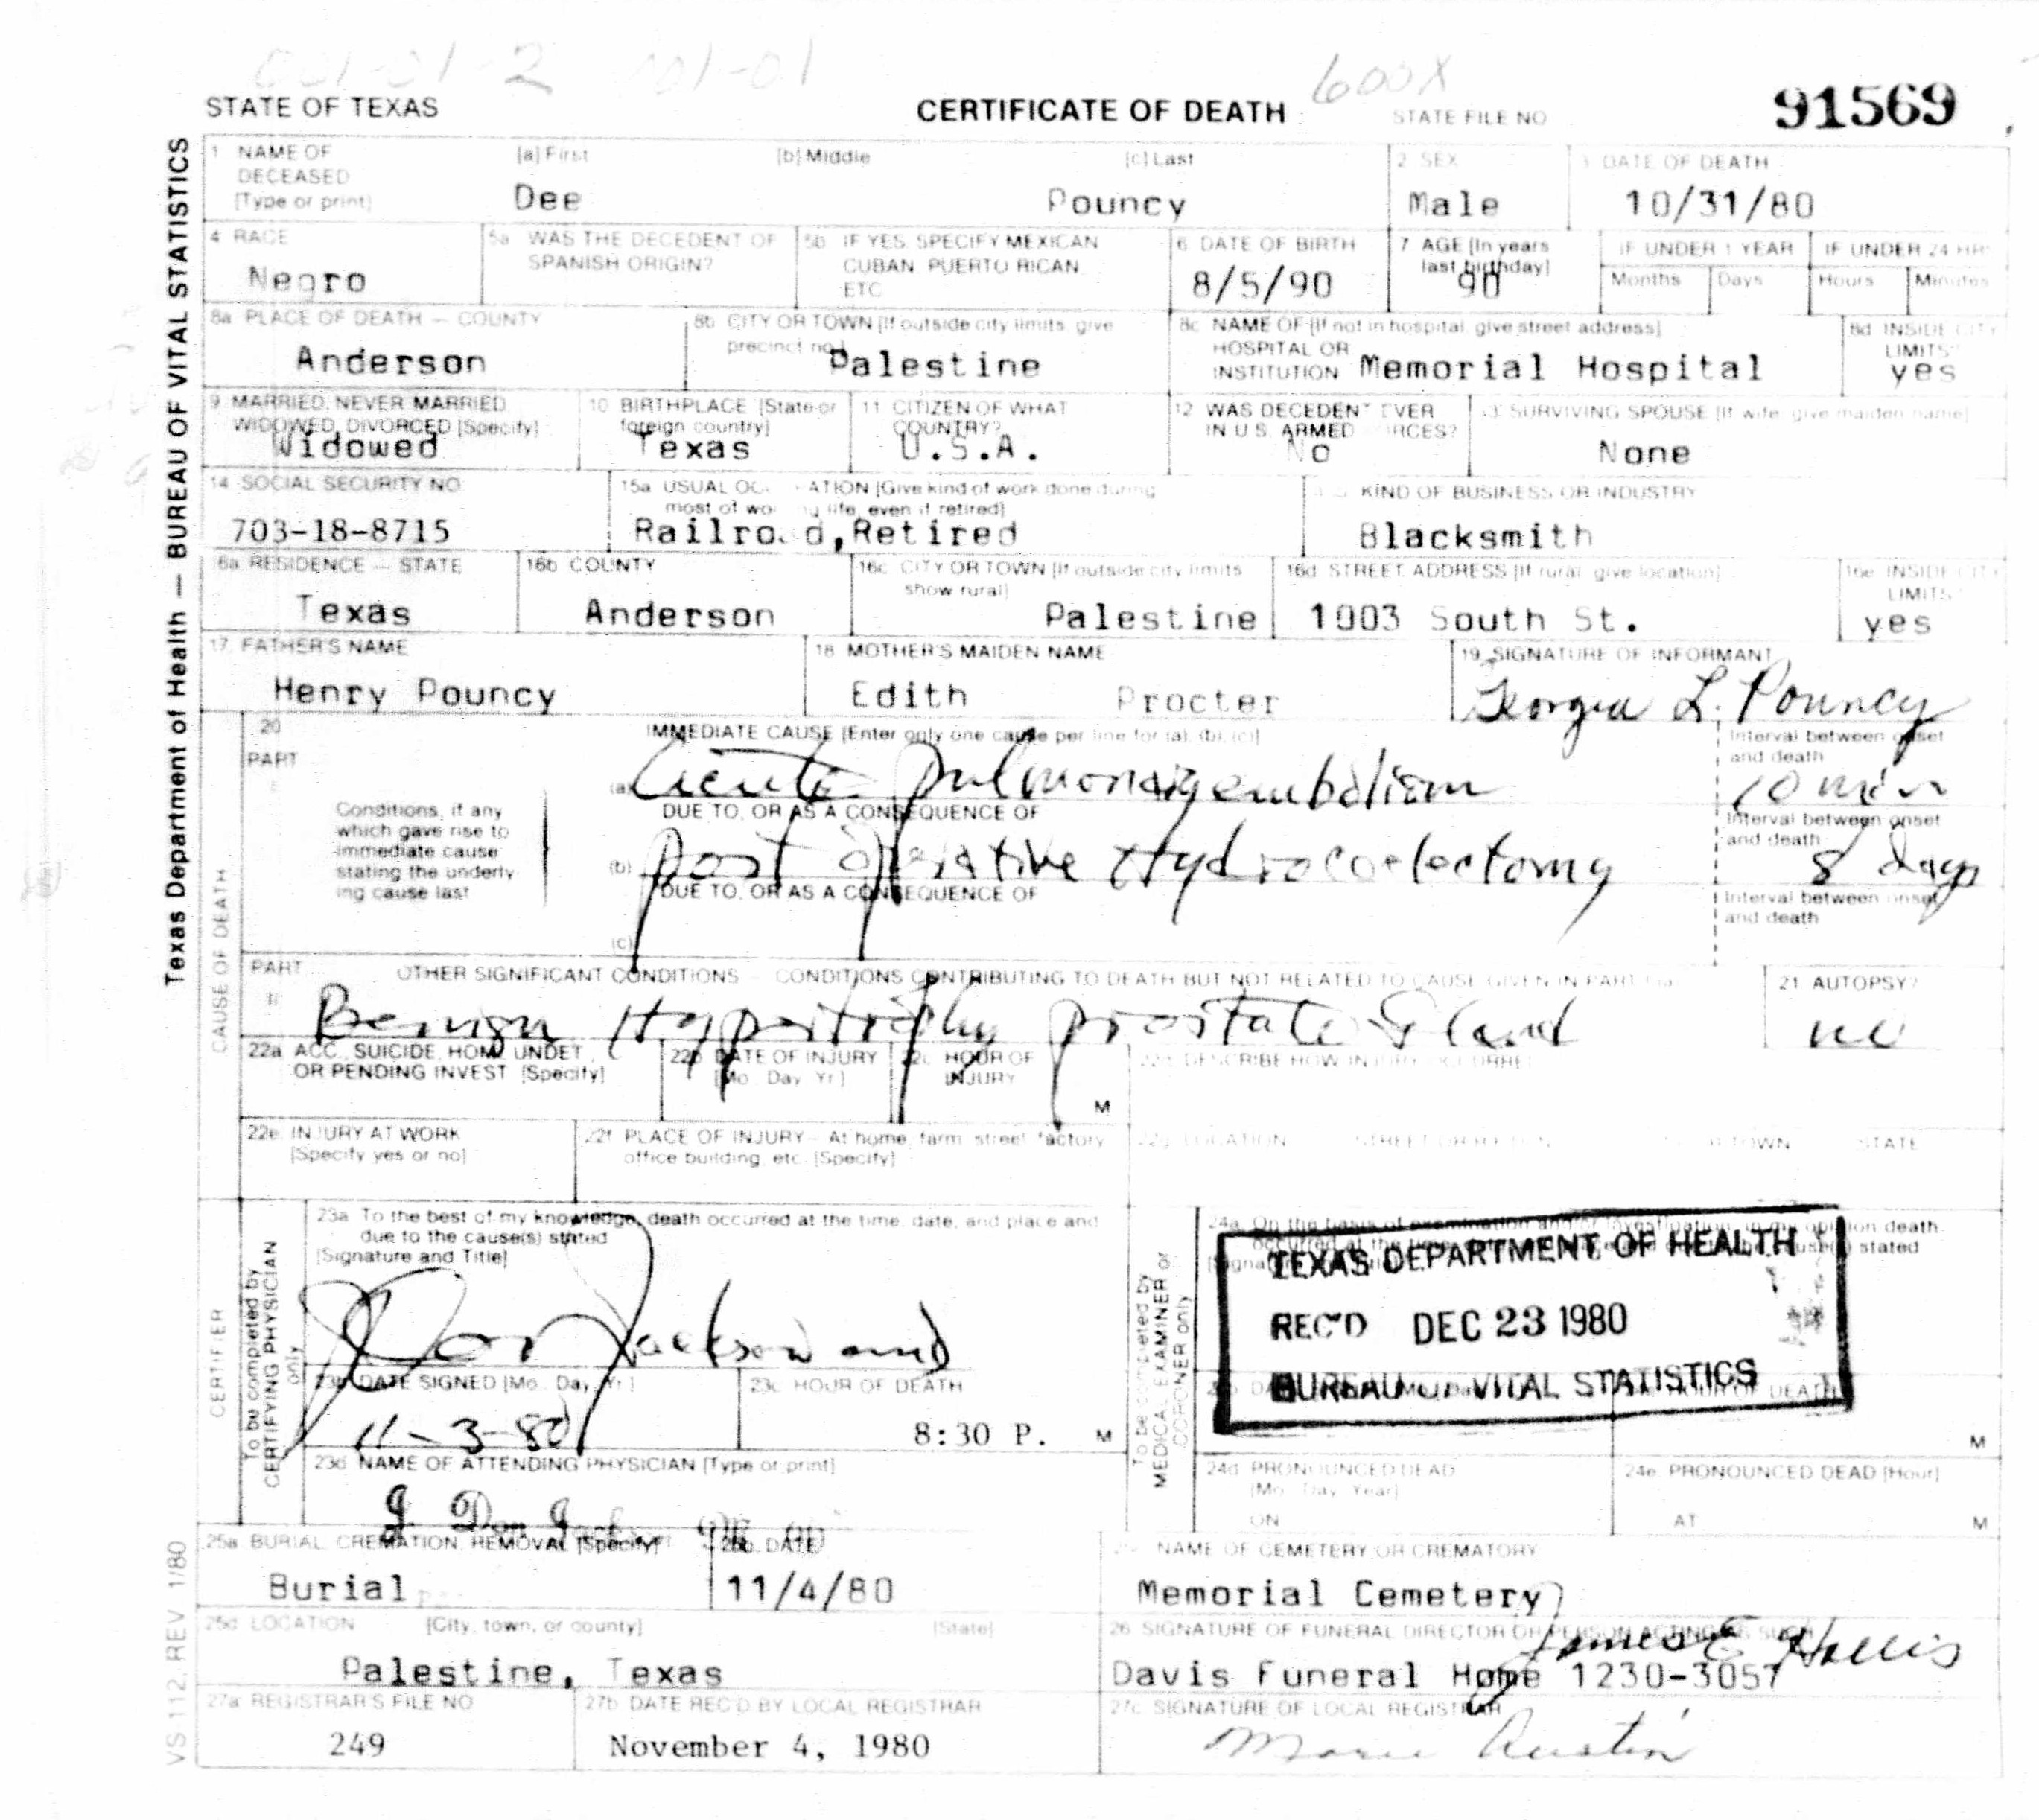 001-01-2 001-01 600X
STATE OF TEXAS CERTIFICATE OF DEATH STATE FILE NO 91569
Texas Department of Health — BUREAU OF VITAL STATISTICS
1 NAME OF DECEASED [Type or print] [a] First [b] Middle [c] Last 2 SEX 3 DATE OF DEATH
Dee Pouncy Male 10/31/80
4 RACE 5a WAS THE DECEDENT OF SPANISH ORIGIN? 5b IF YES, SPECIFY MEXICAN CUBAN PUERTO RICAN ETC 6 DATE OF BIRTH 7 AGE [In years last birthday] IF UNDER 1 YEAR IF UNDER 24 HRS
Months Days Hours Minutes
Negro 8/5/90 90
8a PLACE OF DEATH — COUNTY 8b CITY OR TOWN [If outside city limits, give precinct no.] 8c NAME OF [If not in hospital, give street address] HOSPITAL OR INSTITUTION 8d INSIDE CITY LIMITS?
Anderson Palestine Memorial Hospital yes
9 MARRIED, NEVER MARRIED, WIDOWED, DIVORCED [Specify] 10 BIRTHPLACE [State or foreign country] 11 CITIZEN OF WHAT COUNTRY? 12 WAS DECEDENT EVER IN U.S. ARMED FORCES? 13 SURVIVING SPOUSE [If wife, give maiden name]
Widowed Texas U.S.A. No None
14 SOCIAL SECURITY NO 15a USUAL OCCUPATION [Give kind of work done during most of working life, even if retired] KIND OF BUSINESS OR INDUSTRY
703-18-8715 Railroad,Retired Blacksmith
16a RESIDENCE — STATE 16b COUNTY 16c CITY OR TOWN [If outside city limits show rural] 16d STREET ADDRESS [If rural, give location] 16e INSIDE CITY LIMITS?
Texas Anderson Palestine 1003 South St. yes
17 FATHER'S NAME 18 MOTHER'S MAIDEN NAME 19 SIGNATURE OF INFORMANT
Henry Pouncy Edith Procter Georgia L. Pouncy
CAUSE OF DEATH
20 PART IMMEDIATE CAUSE [Enter only one cause per line for (a), (b), (c)] Interval between onset and death
(a) Acute pulmonary embolism 10 min
DUE TO, OR AS A CONSEQUENCE OF Interval between onset and death
Conditions, if any which gave rise to immediate cause stating the underlying cause last
(b) post operative Hydrocoelectomy 8 days
DUE TO, OR AS A CONSEQUENCE OF Interval between onset and death
(c)
PART II OTHER SIGNIFICANT CONDITIONS CONDITIONS CONTRIBUTING TO DEATH BUT NOT RELATED TO CAUSE GIVEN IN PART 21 AUTOPSY?
Benign Hypertrophy prostate Gland no
22a ACC, SUICIDE, HOM, UNDET, OR PENDING INVEST [Specify] 22b DATE OF INJURY [Mo. Day, Yr.] 22c HOUR OF INJURY M 22d DESCRIBE HOW INJURY OCCURRED
22e INJURY AT WORK [Specify yes or no] 22f PLACE OF INJURY — At home, farm, street, factory, office building, etc. [Specify] 22g LOCATION STREET OR TOWN STATE
CERTIFIER
To be completed by CERTIFYING PHYSICIAN only
23a To the best of my knowledge, death occurred at the time, date, and place and due to the cause(s) stated
[Signature and Title]
J Don Jackson md
23b DATE SIGNED [Mo., Day, Yr.] 23c HOUR OF DEATH
11-3-80 8:30 P. M
23d NAME OF ATTENDING PHYSICIAN [Type or print]
J Don Jackson
To be completed by MEDICAL EXAMINER or CORONER only
24a On the basis of examination and/or investigation, in my opinion death occurred at the time stated
TEXAS DEPARTMENT OF HEALTH
REC'D DEC 23 1980
BUREAU OF VITAL STATISTICS
M
24d PRONOUNCED DEAD [Mo. Day, Year] 24e PRONOUNCED DEAD [Hour]
ON AT M
25a BURIAL, CREMATION, REMOVAL [Specify] 25b DATE NAME OF CEMETERY OR CREMATORY
Burial 11/4/80 Memorial Cemetery
25d LOCATION [City, town, or county] [State] 26 SIGNATURE OF FUNERAL DIRECTOR OR PERSON ACTING AS SUCH
James E Hollis
Palestine, Texas Davis Funeral Home 1230-3057
27a REGISTRAR'S FILE NO 27b DATE REC'D BY LOCAL REGISTRAR 27c SIGNATURE OF LOCAL REGISTRAR
249 November 4, 1980 Marie Austin
VS 112, REV 1/80